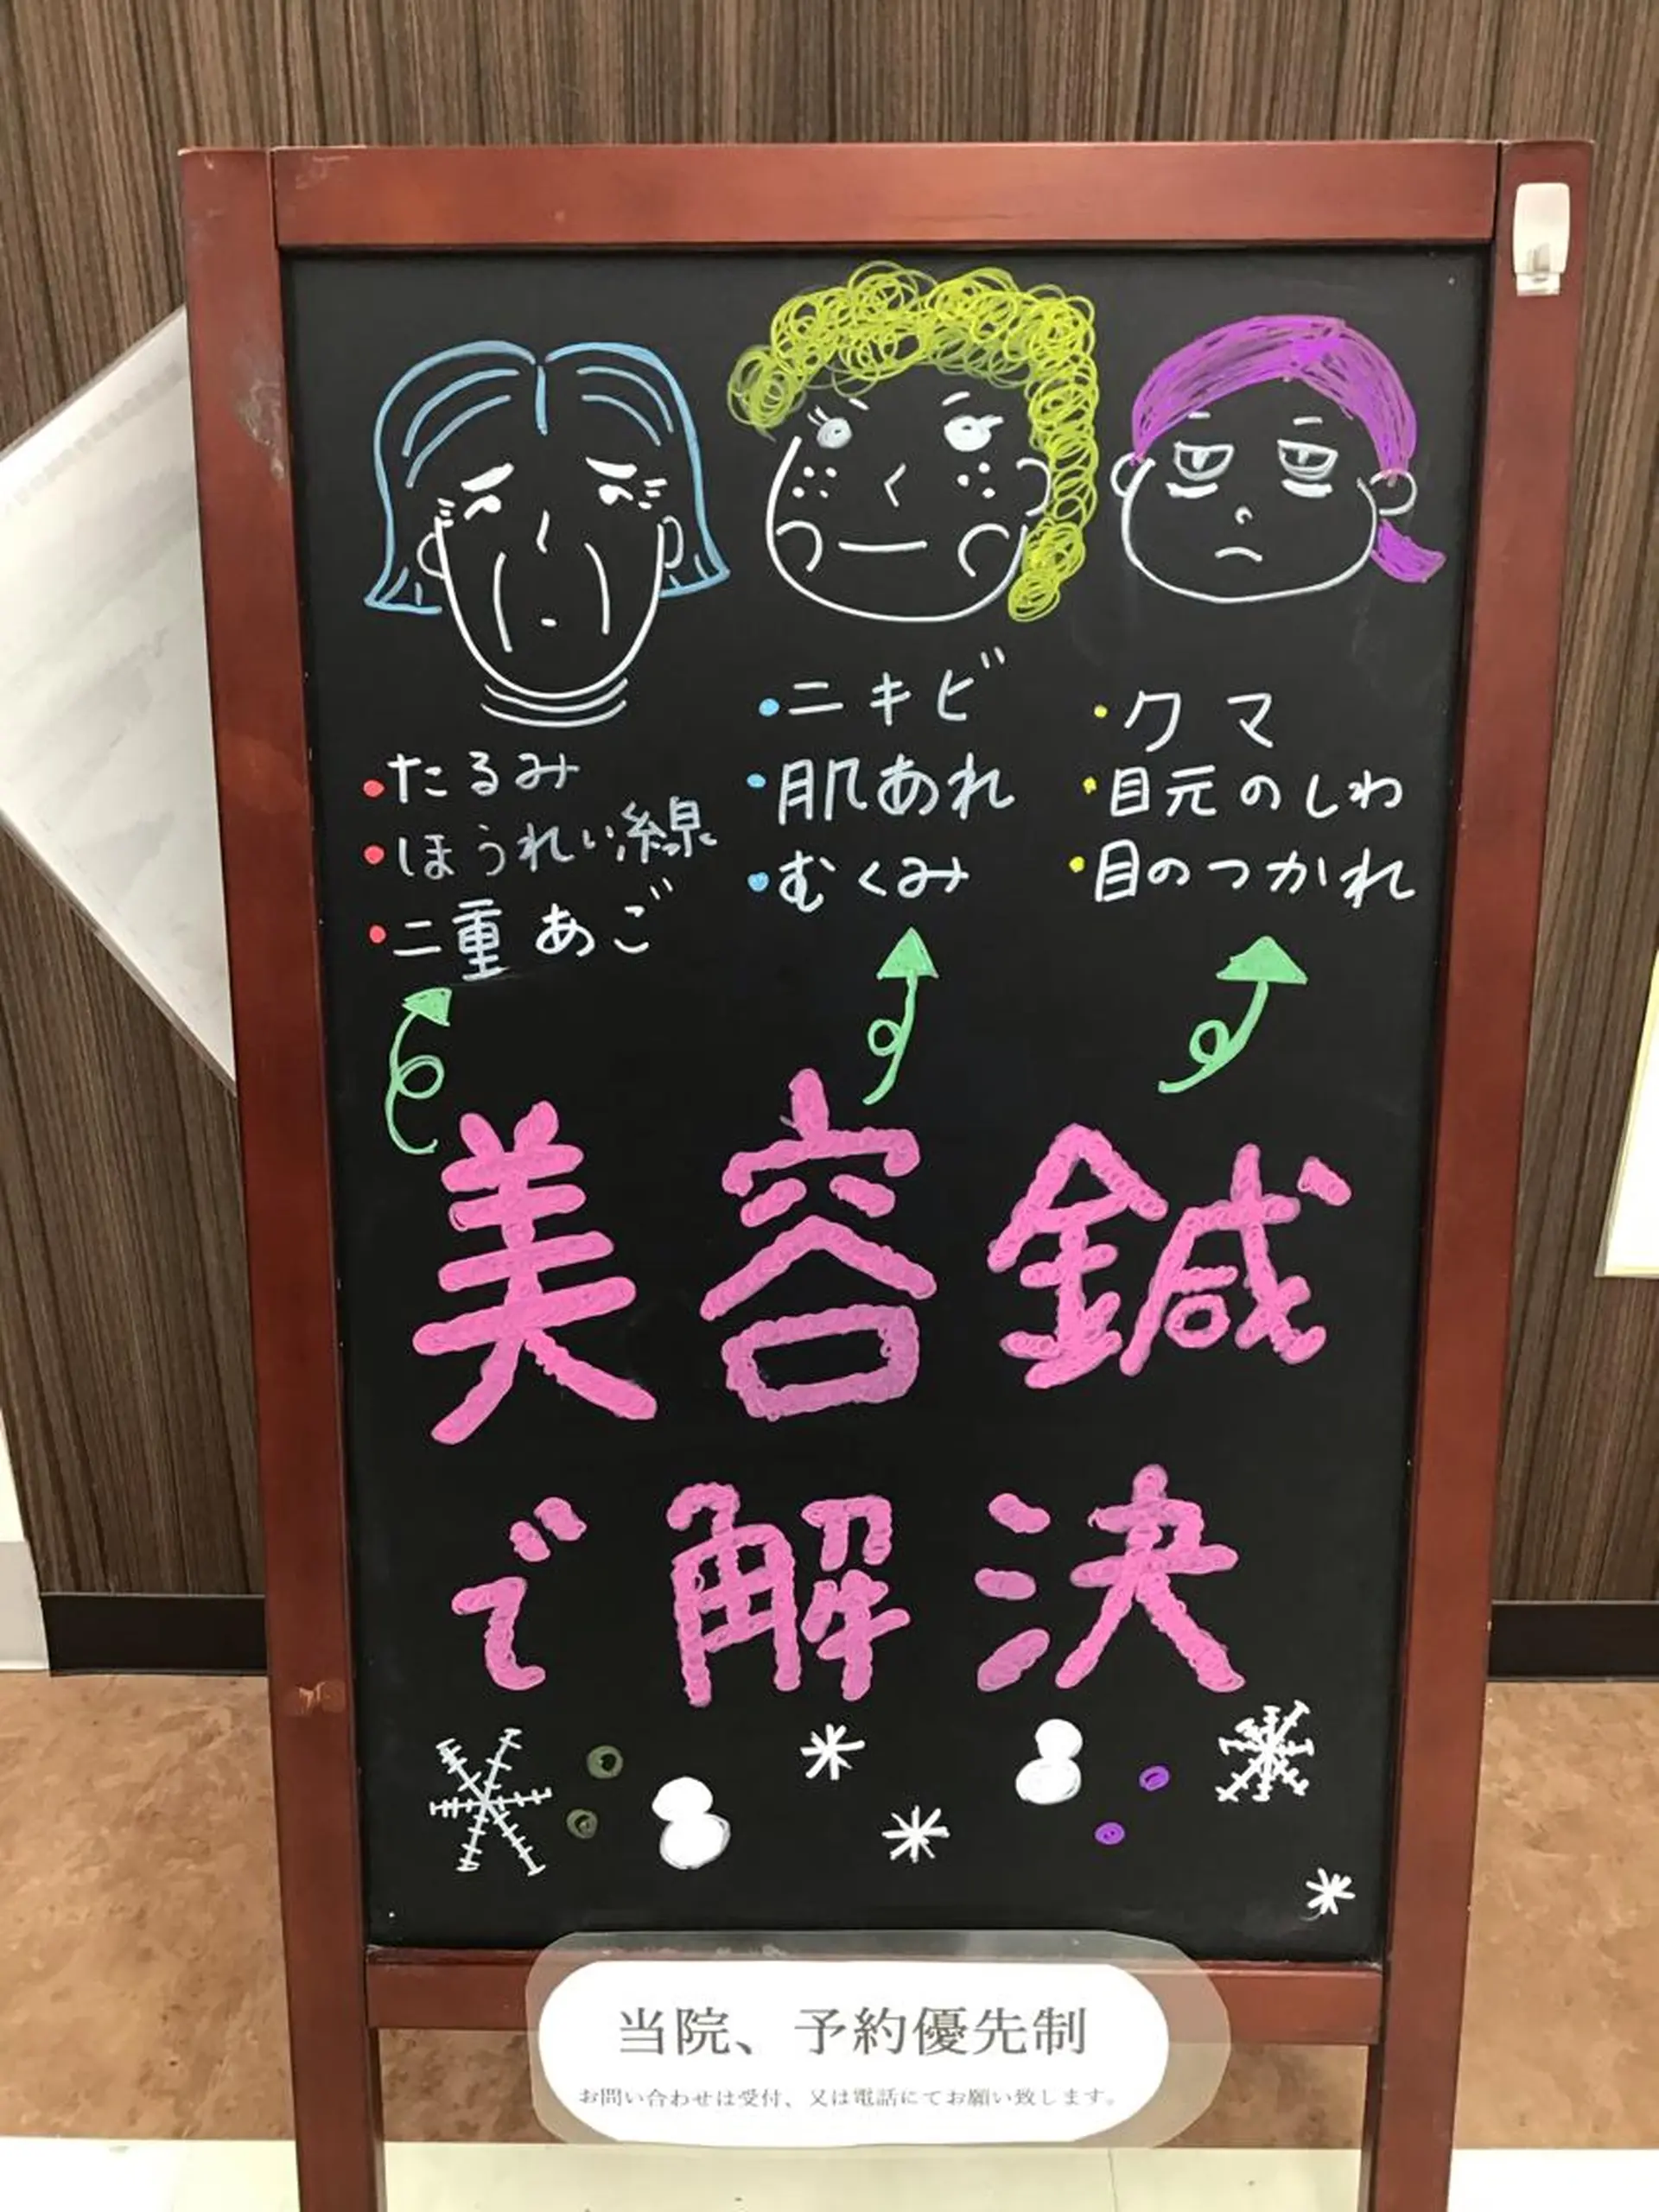 ・たるみ
・ほうれい線
・二重あご
・ニキビ
・肌あれ
・むくみ
・クマ
・目元のしわ
・目のつかれ
美容鍼
で解決
当院、予約優先制
お問い合わせは受付、又は電話にてお願い致します。